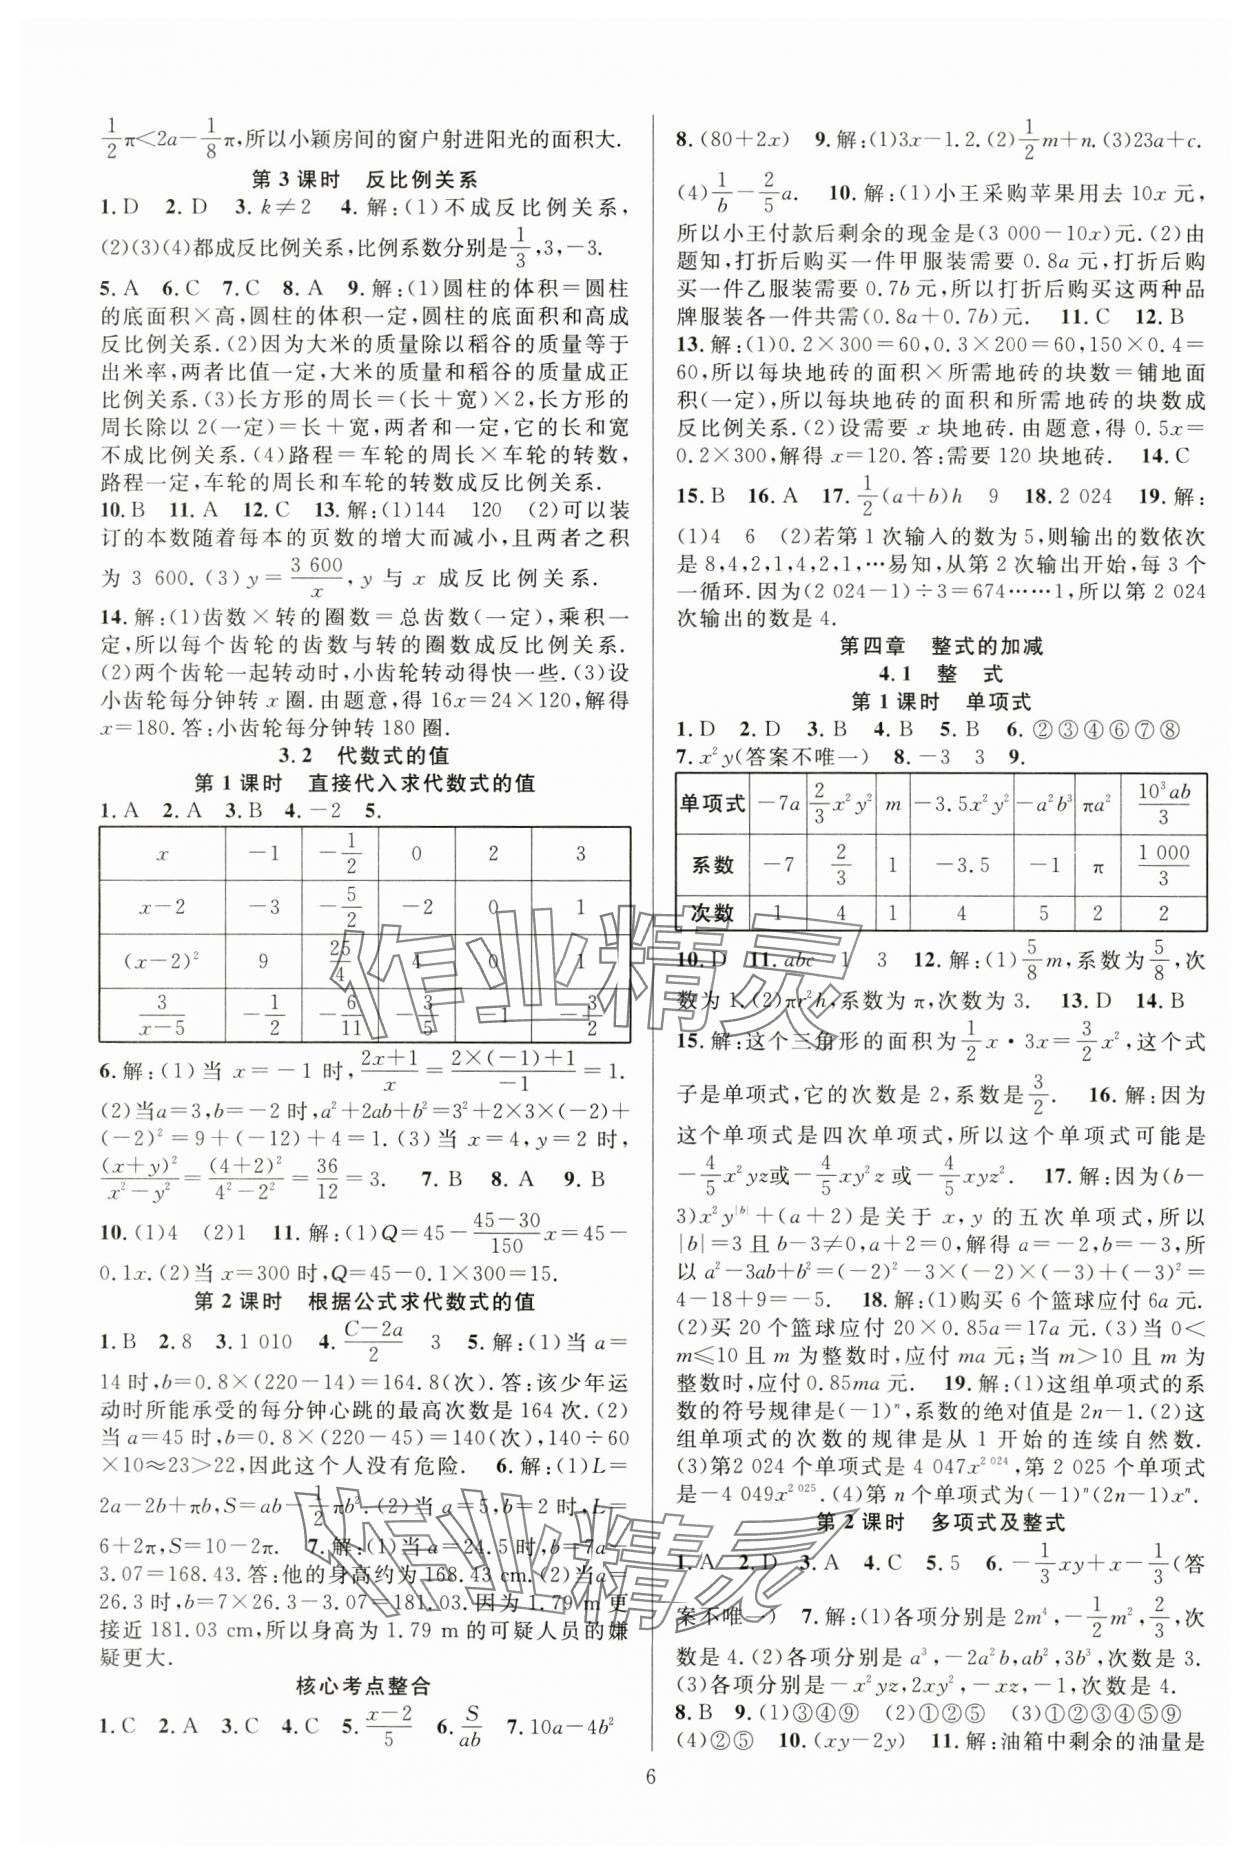 1/2π<2a−1/8π,所以小颖房间的窗户射进阳光的面积大.
第3课时 反比例关系
1.D 2.D 3.k≠2 4.解:(1)不成反比例关系,
(2)(3)(4)都成反比例关系,比例系数分别是1/3,3,−3.
5.A 6.C 7.C 8.A 9.解:(1)圆柱的体积=圆柱
的底面积×高,圆柱的体积一定,圆柱的底面积和高成
反比例关系.(2)因为大米的质量除以稻谷的质量等于
出米率,两者比值一定,大米的质量和稻谷的质量成正
比例关系.(3)长方形的周长=(长+宽)×2,长方形的
周长除以2(一定)=长+宽,两者和一定,它的长和宽
不成比例关系.(4)路程=车轮的周长×车轮的转数,
路程一定,车轮的周长和车轮的转数成反比例关系.
10.B 11.A 12.C 13.解:(1)144 120 (2)可以装
订的本数随着每本的页数的增大而减小,且两者之积
为 3 600.(3)y=3 600/x,y 与 x 成反比例关系.
14.解:(1)齿数×转的圈数=总齿数(一定),乘积一
定,所以每个齿轮的齿数与转的圈数成反比例关系.
(2)两个齿轮一起转动时,小齿轮转动得快一些.(3)设
小齿轮每分钟转 x 圈.由题意,得 16x=24×120,解得
x=180.答:小齿轮每分钟转 180 圈.
3.2 代数式的值
第1课时 直接代入求代数式的值
1.A 2.A 3.B 4.−2 5.
x −1 −1/2 0 2 3
x−2 −3 −5/2 −2 0 1
(x−2)² 9 25/4 4 0 1
3/(x−5) −1/2 −6/11 −3/5 −1 −3/2
6.解:(1)当 x=−1 时,(2x+1)/x=(2×(−1)+1)/(−1)=1.
(2)当a=3,b=−2 时,a²+2ab+b²=3²+2×3×(−2)+
(−2)²=9+(−12)+4=1.(3)当 x=4,y=2 时,
(x+y)²/(x²−y²)=(4+2)²/(4²−2²)=36/12=3. 7.B 8.A 9.B
10.(1)4 (2)1 11.解:(1)Q=45−(45−30)/150 x=45−
0.1x.(2)当 x=300 时,Q=45−0.1×300=15.
第2课时 根据公式求代数式的值
1.B 2.8 3.1 010 4.(C−2a)/2 3 5.解:(1)当 a=
14 时,b=0.8×(220−14)=164.8(次).答:该少年运
动时所能承受的每分钟心跳的最高次数是 164 次.(2)
当 a=45 时,b=0.8×(220−45)=140(次),140÷60
×10≈23>22,因此这个人没有危险. 6.解:(1)L=
2a−2b+πb,S=ab−1/2πb².(2)当 a=5,b=2 时,L=
6+2π,S=10−2π. 7.解:(1)当 a=24.5 时,b=7a−
3.07=168.43.答:他的身高约为 168.43 cm.(2)当a=
26.3 时,b=7×26.3−3.07=181.03.因为 1.79 m 更
接近 181.03 cm,所以身高为 1.79 m 的可疑人员的嫌
疑更大.
核心考点整合
1.C 2.A 3.C 4.C 5.(x−2)/5 6.S/ab 7.10a−4b²
8.(80+2x) 9.解:(1)3x−1.2.(2)1/2m+n.(3)23a+c.
(4)1/b−2/5a. 10.解:(1)小王采购苹果用去 10x 元,
所以小王付款后剩余的现金是(3 000−10x)元.(2)由
题知,打折后购买一件甲服装需要 0.8a 元,打折后购
买一件乙服装需要 0.7b 元,所以打折后购买这两种品
牌服装各一件共需(0.8a+0.7b)元. 11.C 12.B
13.解:(1)0.2×300=60,0.3×200=60,150×0.4=
60,所以每块地砖的面积×所需地砖的块数=铺地面
积(一定),所以每块地砖的面积和所需地砖的块数成
反比例关系.(2)设需要 x 块地砖.由题意,得 0.5x=
0.2×300,解得 x=120.答:需要 120 块地砖. 14.C
15.B 16.A 17.1/2(a+b)h 9 18.2 024 19.解:
(1)4 6 (2)若第 1 次输入的数为 5,则输出的数依次
是 8,4,2,1,4,2,1,…易知,从第 2 次输出开始,每 3 个
一循环.因为(2 024−1)÷3=674……1,所以第 2 024
次输出的数是 4.
第四章 整式的加减
4.1 整 式
第1课时 单项式
1.D 2.D 3.B 4.B 5.B 6.②③④⑥⑦⑧
7.x²y(答案不唯一) 8.−3 3 9.
单项式 −7a 2/3x²y² m −3.5x²y² −a²b³ πa² 10³ab/3
系数 −7 2/3 1 −3.5 −1 π 1 000/3
次数 1 4 1 4 5 2 2
10.D 11.abc 1 3 12.解:(1)5/8m,系数为5/8,次
数为 1.(2)πr²h,系数为 π,次数为 3. 13.D 14.B
15.解:这个三角形的面积为1/2x·3x=3/2x²,这个式
子是单项式,它的次数是 2,系数是3/2. 16.解:因为
这个单项式是四次单项式,所以这个单项式可能是
−4/5x²yz或−4/5xy²z或−4/5xyz². 17.解:因为(b−
3)x²y^|b|+(a+2)是关于 x,y 的五次单项式,所以
|b|=3 且 b−3≠0,a+2=0,解得 a=−2,b=−3,所
以 a²−3ab+b²=(−2)²−3×(−2)×(−3)+(−3)²=
4−18+9=−5. 18.解:(1)购买 6 个篮球应付 6a 元.
(2)买 20 个篮球应付 20×0.85a=17a 元.(3)当 0<
m≤10 且 m 为整数时,应付 ma 元;当 m>10 且 m 为
整数时,应付 0.85ma 元. 19.解:(1)这组单项式的系
数的符号规律是(−1)ⁿ,系数的绝对值是 2n−1.(2)这
组单项式的次数的规律是从 1 开始的连续自然数.
(3)第2 024 个单项式是 4 047x^2 024,第 2 025 个单项式
是−4 049x^2 025.(4)第 n 个单项式为(−1)ⁿ(2n−1)xⁿ.
第2课时 多项式及整式
1.A 2.D 3.A 4.C 5.5 6.−1/3xy+x−1/3(答
案不唯一) 7.解:(1)各项分别是 2m⁴,−1/2m²,2/3,次
数是 4.(2)各项分别是 a³,−2a²b,ab²,3b³,次数是 3.
(3)各项分别是−x²yz,2xy²,−xz,−1,次数是 4.
8.B 9.(1)③④⑨ (2)①②⑤ (3)①②③④⑤⑨
(4)②⑤ 10.(xy−2y) 11.解:油箱中剩余的油量是
6
作业精灵
作业精灵